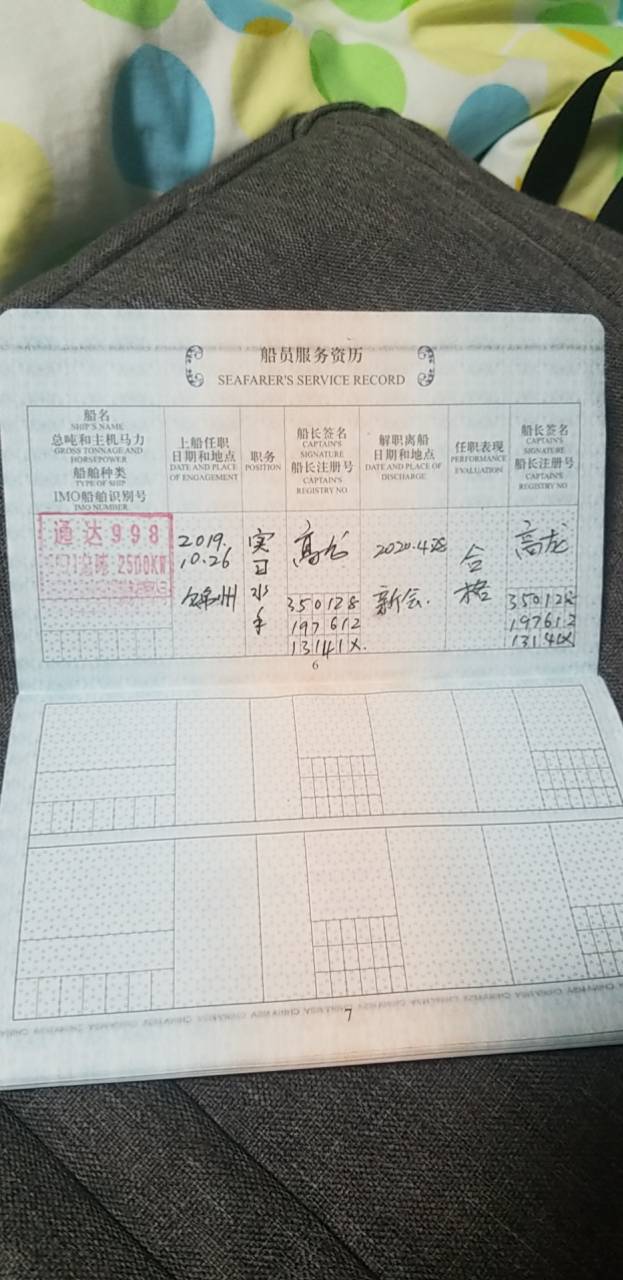 船员服务资历
SEAFARER'S SERVICE RECORD
船名
SHIP'S NAME
总吨和主机马力
GROSS TONNAGE AND
HORSEPOWER
船舶种类
TYPE OF SHIP
IMO船舶识别号
IMO NUMBER
上船任职
日期和地点
DATE AND PLACE
OF ENGAGEMENT
职务
POSITION
船长签名
CAPTAIN'S
SIGNATURE
船长注册号
CAPTAIN'S
REGISTRY NO
解职离船
日期和地点
DATE AND PLACE OF
DISCHARGE
任职表现
PERFORMANCE
EVALUATION
船长签名
CAPTAIN'S
SIGNATURE
船长注册号
CAPTAIN'S
REGISTRY NO
通达998
2500KW
2019.
10.26
锦州
实
习
水
手
高龙
350128
197612
13141X.
2020.4.28
新会.
合
格
高龙
350128
197612
13141X
6
7